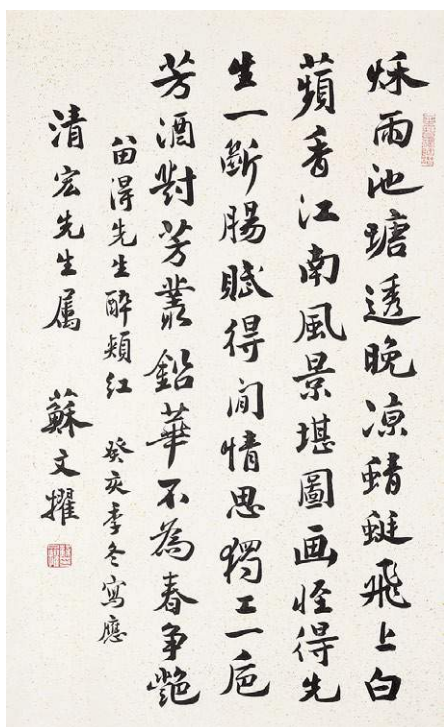 秌雨池塘透晚凉蜻蜓飛上白
蘋香江南風景堪圖画怪得先
生一斷腸賦得閒情思獨工一卮
芳酒對芳叢鉛華不為春争艷
留得先生醉頰紅 癸亥季冬寫應
清宏先生属 蘇文擢